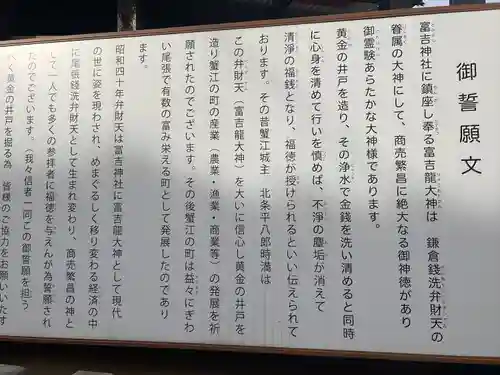 御誓願文
富吉神社に鎮座し奉る富吉龍大神は 鎌倉銭洗弁財天の
眷属の大神にして、商売繁昌に絶大なる御神徳があり
御霊験あらたかな大神様であります。
黄金の井戸を造り、その浄水で金銭を洗い清めると同時
に心身を清めて行いを慎めば、不浄の塵垢が消えて
清浄の福銭となり、福徳が授けられるといい伝えられて
おります。その昔蟹江城主 北条平八郎時満は
この弁財天(富吉龍大神)を大いに信心し黄金の井戸を
造り蟹江の町の産業(農業・漁業・商業等)の発展を祈
願されたのでございます。その後蟹江の町は益々にぎわ
い尾張で有数の富み栄える町として発展したのであり
ます。
昭和四十年弁財天は富吉神社に富吉龍大神として現代
の世に姿を現わされ、めまぐるしく移り変わる経済の中
に尾張銭洗弁財天として生まれ変わり、商売繁昌の神と
して一人でも多くの参拝者に福徳を与えんが為誓願され
たのでございます。(我々信者一同この御誓願を担う
べく黄金の井戸を掘る為 皆様のご協力をお願いいたす